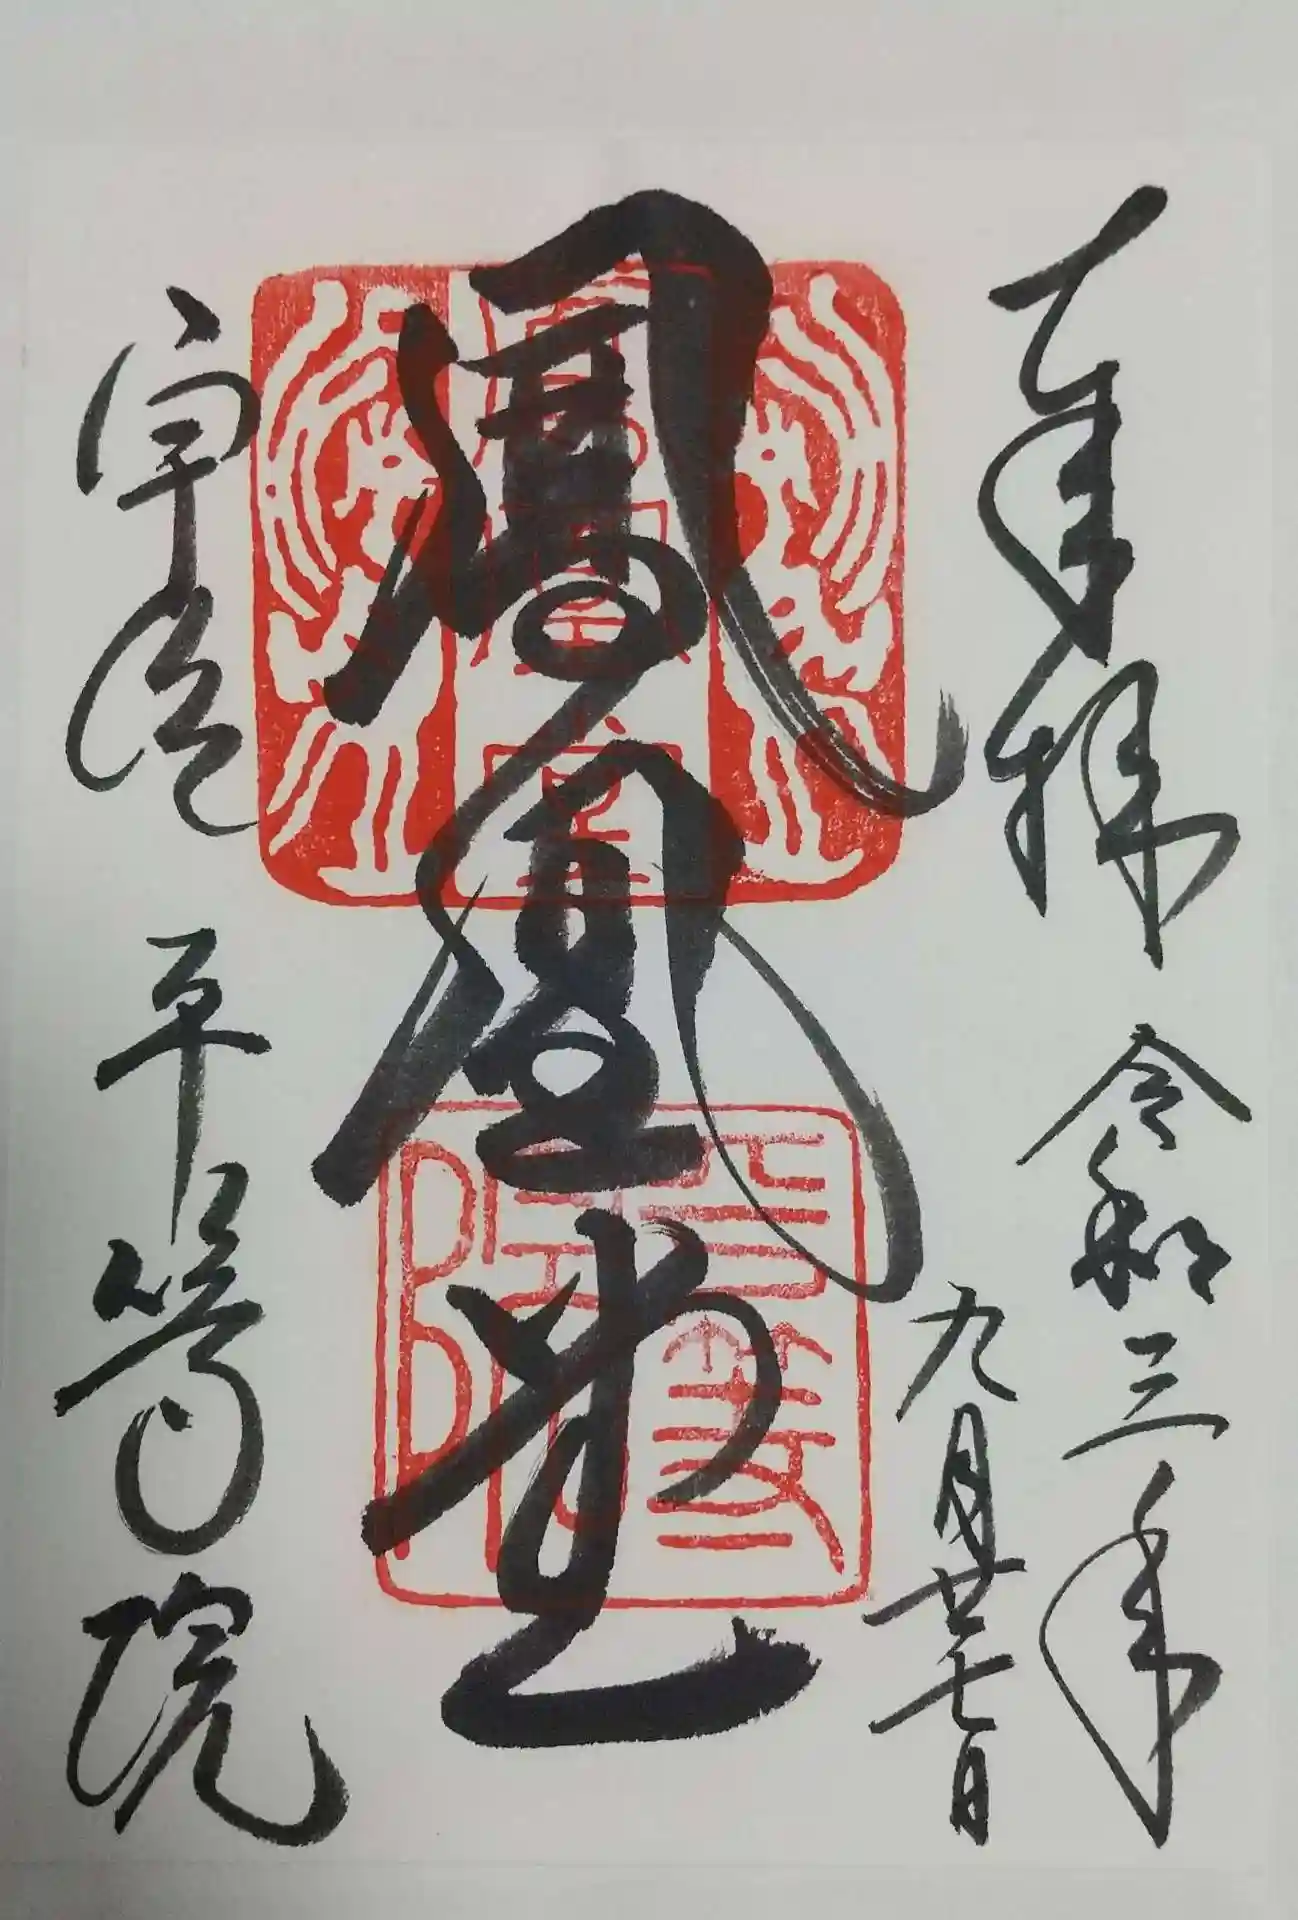 奉拝 令和三年
九月廿七日
鳳凰堂
宇治 平等院
平等院